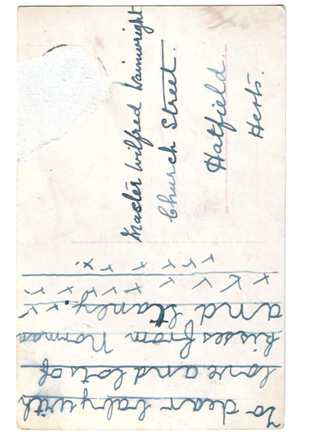 Master Wilfred Wainwright
Church Street.
Hatfield.
Herts.
To dear baby with
love and lots of
kisses from Norman
and Stanley. x x
x x x x x x x
x x x x x.